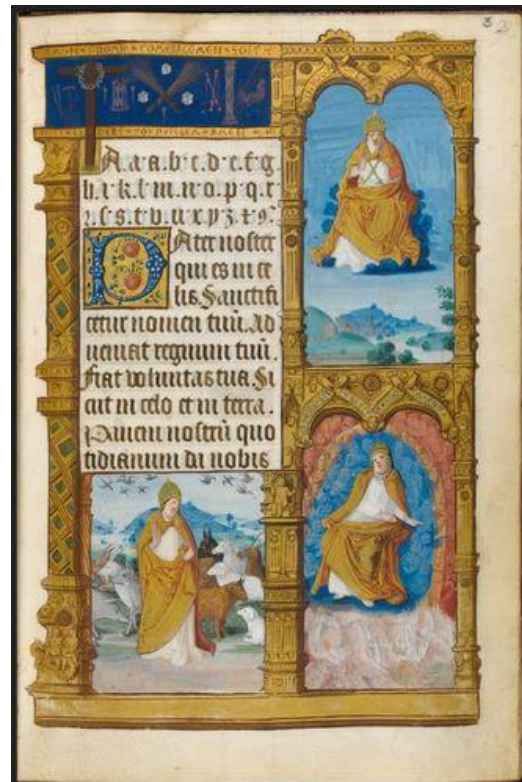 3 2
A.a.a.b.c.d.e.f.g
h.i.k.l.m.n.o.p.q.r
ꝛ.ſ.s.t.v.u.x.y.z.⁊.9.
Pater noster
qui es in ce
lis. Sanctifi
cetur nomen tuū. Ad
ueniat regnum tuū.
Fiat voluntas tua. Si
cut in celo et in terra.
Panem nostrū quo
tidianum da nobis